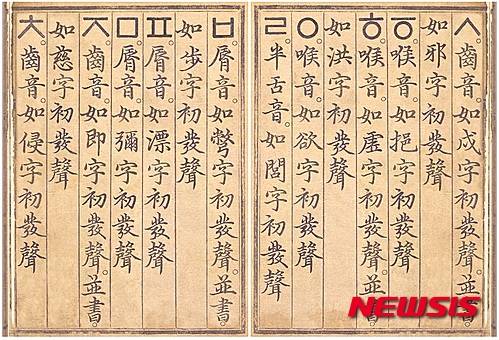 ㅅ齒音。如戌字初發聲。並書。
如邪字初發聲
ㆆ喉音。如挹字初發聲
ㅎ喉音。如虛字初發聲。並書。
如洪字初發聲
ㅇ喉音。如欲字初發聲
ㄹ半舌音。如閭字初發聲
ㅂ脣音。如彆字初發聲。並書。
如步字初發聲
ㅍ脣音。如漂字初發聲
ㅁ脣音。如彌字初發聲
ㅈ齒音。如即字初發聲。並書。
如慈字初發聲
ㅊ齒音。如侵字初發聲
NEWSIS